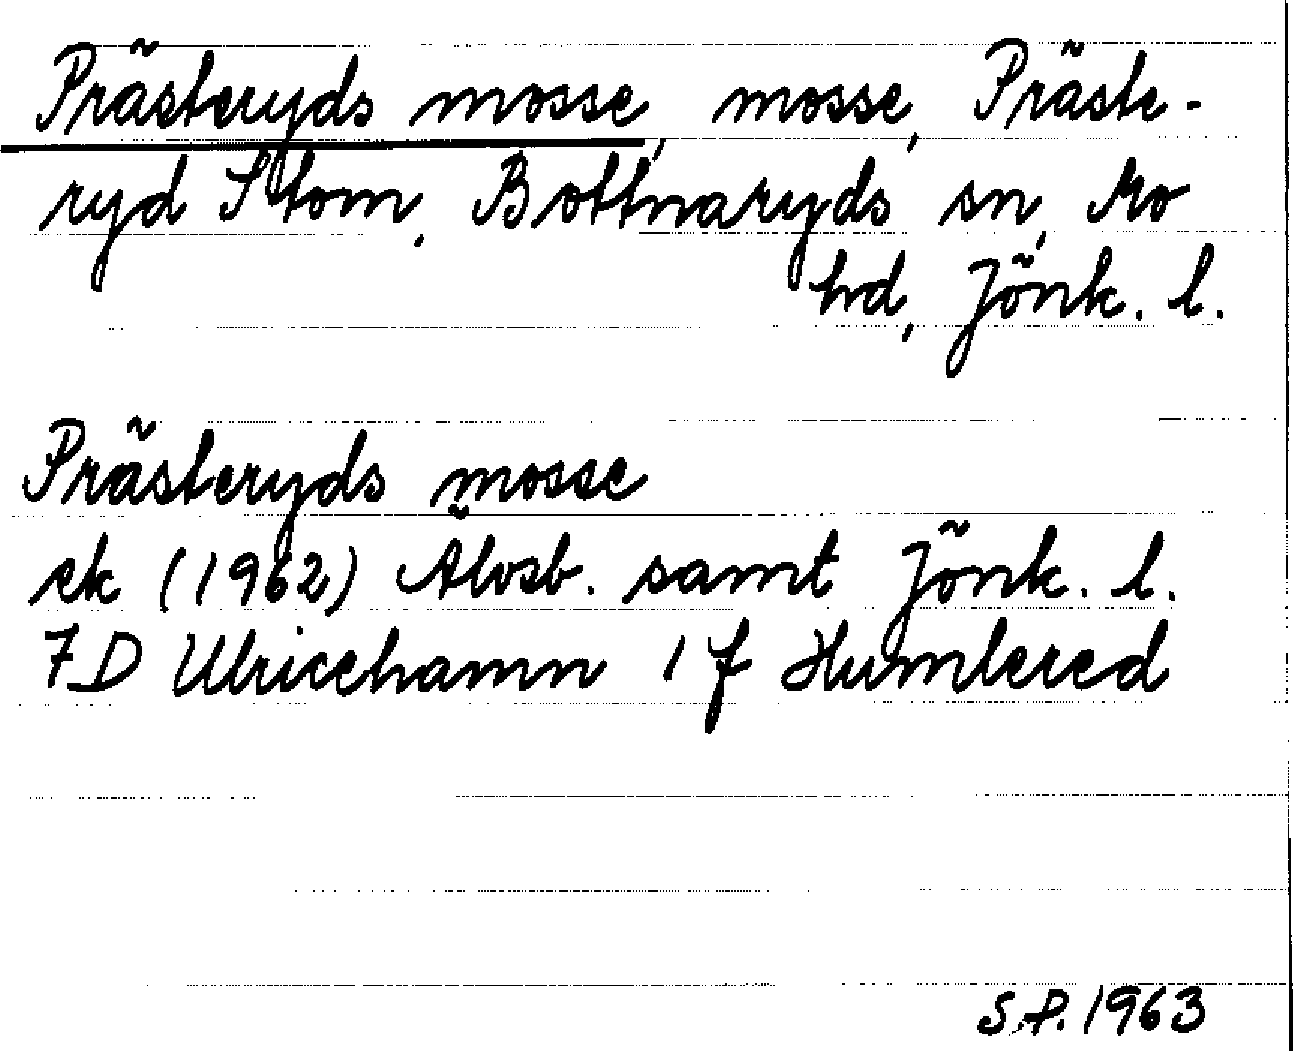 Prästeryds mosse, mosse, Präste-
ryd Stom, Bottnaryds sn, Mo
hd, Jönk. l.
Prästeryds mosse
ek (1962) Älvsb. samt Jönk. l.
7D Ulricehamn 1 f Humlered
S.P. 1963